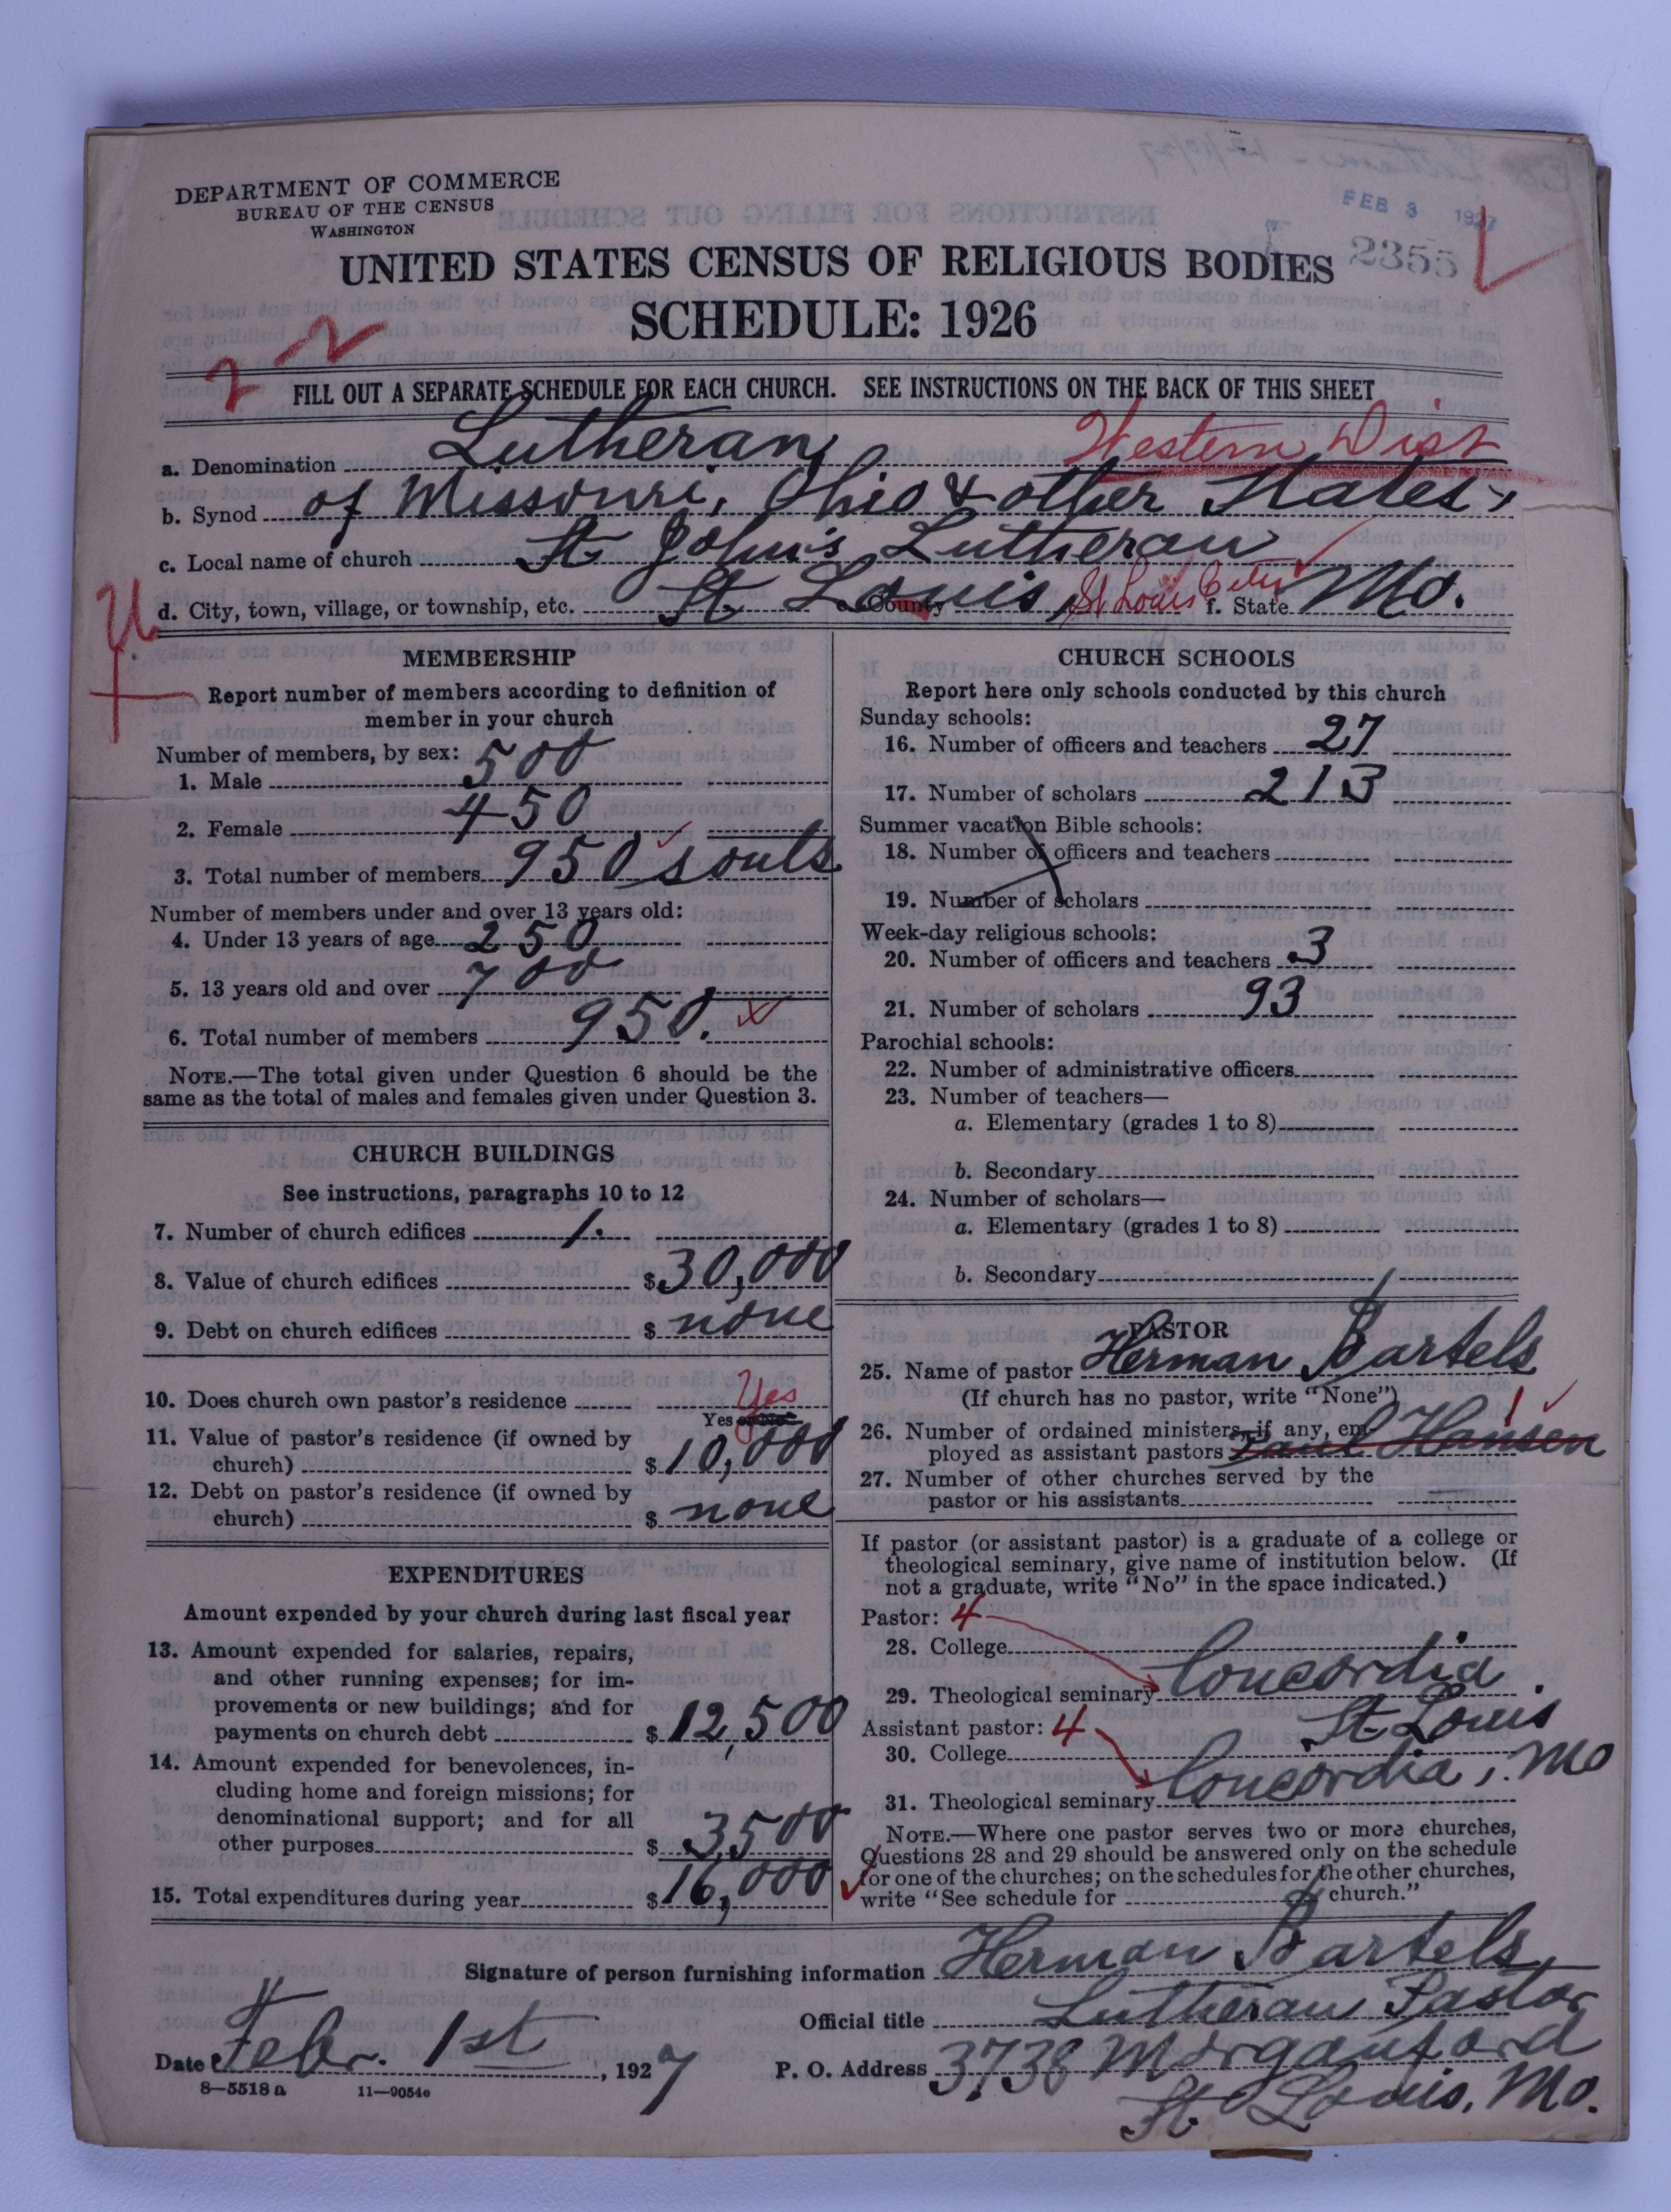 FEB 3 1927
2355
DEPARTMENT OF COMMERCE
BUREAU OF THE CENSUS
WASHINGTON
UNITED STATES CENSUS OF RELIGIOUS BODIES
SCHEDULE: 1926
2 2
FILL OUT A SEPARATE SCHEDULE FOR EACH CHURCH. SEE INSTRUCTIONS ON THE BACK OF THIS SHEET
a. Denomination Lutheran Western Dist
b. Synod of Missouri, Ohio & other States,
c. Local name of church St John's Lutheran
d. City, town, village, or township, etc. St. Louis, e. County St Louis City f. State Mo.
MEMBERSHIP
Report number of members according to definition of
member in your church
Number of members, by sex:
1. Male 500
2. Female 450
3. Total number of members 950 souls
Number of members under and over 13 years old:
4. Under 13 years of age 250
5. 13 years old and over 700
6. Total number of members 950.
NOTE.—The total given under Question 6 should be the
same as the total of males and females given under Question 3.
CHURCH BUILDINGS
See instructions, paragraphs 10 to 12
7. Number of church edifices 1.
8. Value of church edifices $30,000
9. Debt on church edifices $ none
10. Does church own pastor's residence Yes
Yes or No
11. Value of pastor's residence (if owned by
church) $10,000
12. Debt on pastor's residence (if owned by
church) $ none
EXPENDITURES
Amount expended by your church during last fiscal year
13. Amount expended for salaries, repairs,
and other running expenses; for im-
provements or new buildings; and for
payments on church debt $12,500
14. Amount expended for benevolences, in-
cluding home and foreign missions; for
denominational support; and for all
other purposes $ 3500
15. Total expenditures during year $16,000
CHURCH SCHOOLS
Report here only schools conducted by this church
Sunday schools:
16. Number of officers and teachers 27
17. Number of scholars 213
Summer vacation Bible schools:
18. Number of officers and teachers
19. Number of scholars
Week-day religious schools:
20. Number of officers and teachers 3
21. Number of scholars 93
Parochial schools:
22. Number of administrative officers
23. Number of teachers—
a. Elementary (grades 1 to 8)
b. Secondary
24. Number of scholars—
a. Elementary (grades 1 to 8)
b. Secondary
PASTOR
25. Name of pastor Herman Bartels
(If church has no pastor, write "None")
26. Number of ordained ministers, if any, em- 1
ployed as assistant pastors Paul Hansen
27. Number of other churches served by the
pastor or his assistants
If pastor (or assistant pastor) is a graduate of a college or
theological seminary, give name of institution below. (If
not a graduate, write "No" in the space indicated.)
Pastor: 4
28. College
29. Theological seminary Concordia
St. Louis
Assistant pastor: 4
30. College
31. Theological seminary Concordia, Mo
NOTE.—Where one pastor serves two or more churches,
Questions 28 and 29 should be answered only on the schedule
for one of the churches; on the schedules for the other churches,
write "See schedule for church."
Signature of person furnishing information Herman Bartels
Official title Lutheran Pastor
Date Febr. 1st, 1927 P. O. Address 3738 Morganford
St. Louis, Mo.
8—5518 a 11—9054o